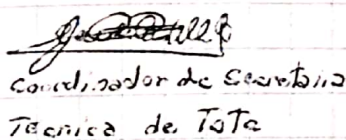 Coordinador de Secretaria
Tecnica de Tota